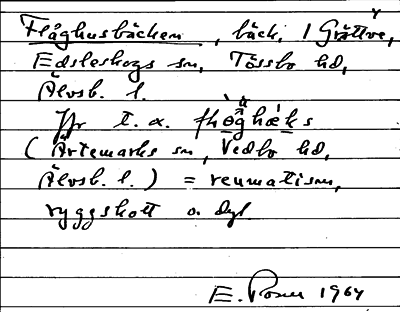 Flåghusbäcken, bäck, i Grättve,
Edsleskogs sn, Tössbo hd,
Älvsb. l.
Jfr t. ex.
(Ärtemarks sn, Vedbo hd,
Älvsb. l.) = reumatism,
ryggskott o. dyl
E. Rosell 1964